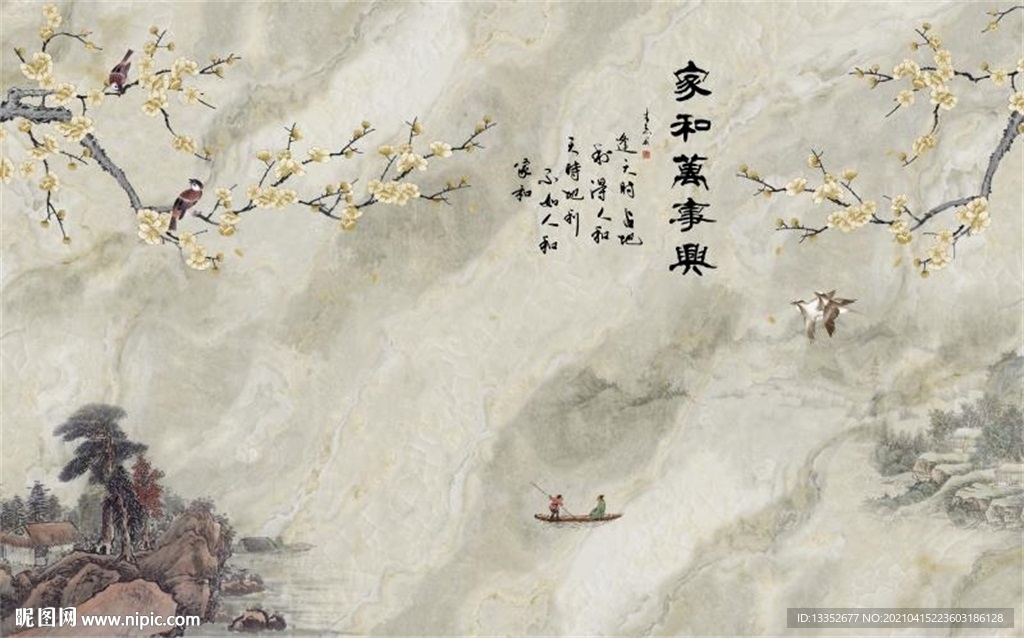 家和萬事興
逢天時占地
利得人和
天時地利
不如人和
家和
昵图网 www.nipic.com
ID:13352677 NO:20210415223603186128